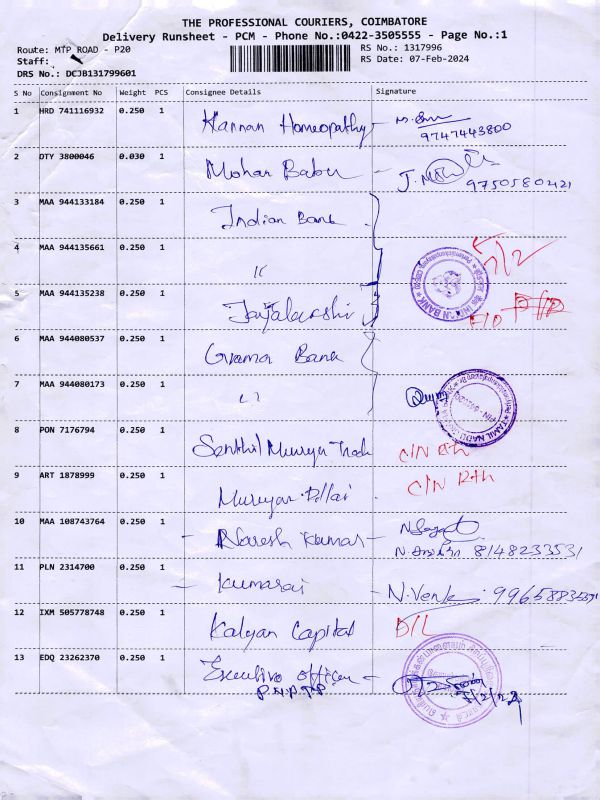 THE PROFESSIONAL COURIERS, COIMBATORE
Delivery Runsheet - PCM - Phone No.:0422-3505555 - Page No.:1
Route: MTP ROAD - P20
RS No.: 1317996
Staff:
RS Date: 07-Feb-2024
DRS No.: DCJB131799601
S No Consignment No Weight PCS Consignee Details Signature
1 HRD 741116932 0.250 1 Kannan Homeopathy 9747443800
2 DTY 3800046 0.030 1 Mohan Babu 9750580421
3 MAA 944133184 0.250 1 Indian Bank
4 MAA 944135661 0.250 1 " 7/2
5 MAA 944135238 0.250 1 Jayalakshi
6 MAA 944080537 0.250 1 Grama Bank
7 MAA 944080173 0.250 1 "
8 PON 7176794 0.250 1 Senthil Murugan C/N
9 ART 1878999 0.250 1 Murugan Pillai C/N
10 MAA 108743764 0.250 1 - Naresh Kumar - 8148233531
11 PLN 2314700 0.250 1 - Kumarai - N.Venk
12 IXM 505778748 0.250 1 Kalyan Capital D/L
13 EDQ 23262370 0.250 1 Executive officer - 7/2/24